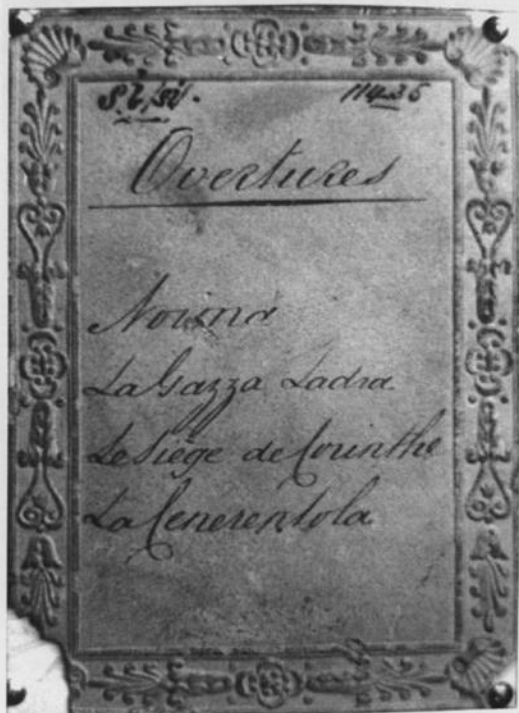 11435
Overtures
Norma
La Gazza Ladra
Le Siège de Corinthe
La Cenerentola